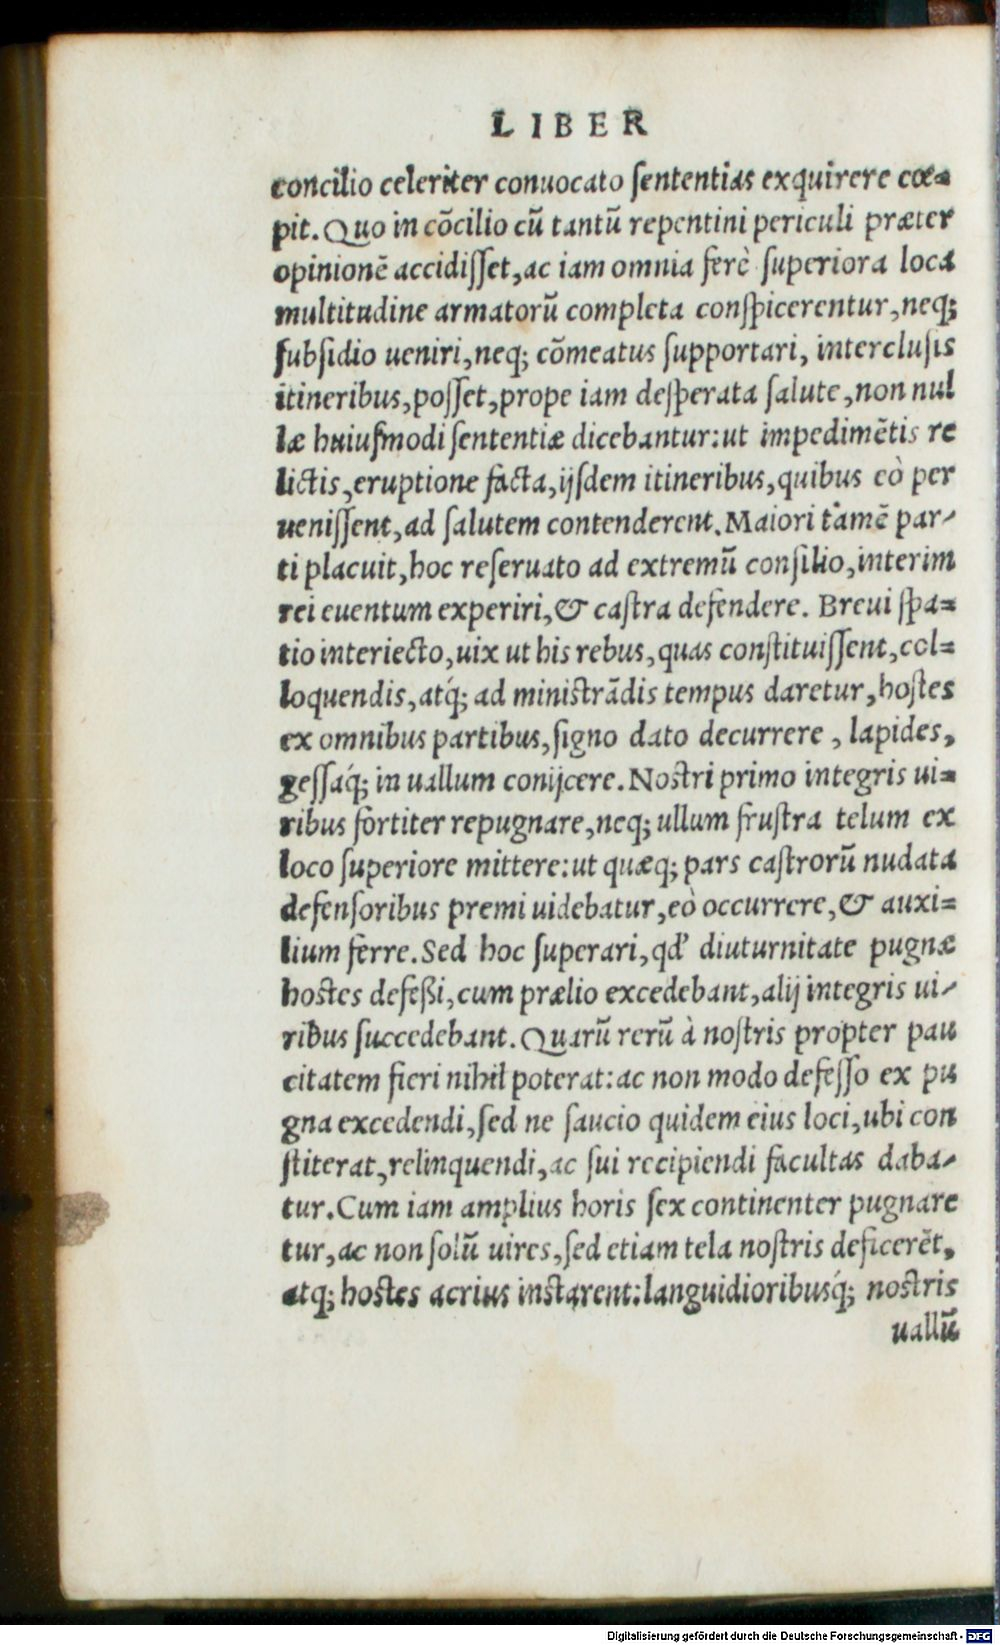 LIBER
concilio celeriter conuocato ſententias exquirere cœ=
pit. Quo in cōcilio cū tantū repentini periculi præter
opinionē accidiſſet, ac iam omnia ferè ſuperiora loca
multitudine armatorū completa conſpicerentur, neq;
ſubſidio ueniri, neq; cōmeatus ſupportari, intercluſis
itineribus, poſſet, prope iam deſperata ſalute, non nul
læ huiuſmodi ſententiæ dicebantur: ut impedimētis re
lictis, eruptione facta, ijſdem itineribus, quibus eò per
ueniſſent, ad ſalutem contenderent. Maiori tamē par-
ti placuit, hoc reſeruato ad extremū conſilio, interim
rei euentum experiri, & caſtra defendere. Breui ſpa=
tio interiecto, uix ut his rebus, quas conſtituiſſent, col=
loquendis, atq́; ad miniſtrādis tempus daretur, hoſtes
ex omnibus partibus, ſigno dato decurrere, lapides,
geſſaq́; in uallum conijcere. Noſtri primo integris ui=
ribus fortiter repugnare, neq; ullum fruſtra telum ex
loco ſuperiore mittere: ut quæq; pars caſtrorū nudata
defenſoribus premi uidebatur, eò occurrere, & auxi=
lium ferre. Sed hoc ſuperari, qd' diuturnitate pugnæ
hoſtes defeßi, cum prælio excedebant, alij integris ui-
ribus ſuccedebant. Quarū rerū à noſtris propter pau
citatem fieri nihil poterat: ac non modo defeſſo ex pu
gna excedendi, ſed ne ſaucio quidem eius loci, ubi con
ſtiterat, relinquendi, ac ſui recipiendi facultas daba-
tur. Cum iam amplius horis ſex continenter pugnare
tur, ac non ſolū uires, ſed etiam tela noſtris deficerēt,
atq; hoſtes acrius inſtarent: languidioribusq́; noſtris
uallū
Digitalisierung gefördert durch die Deutsche Forschungsgemeinschaft - DFG